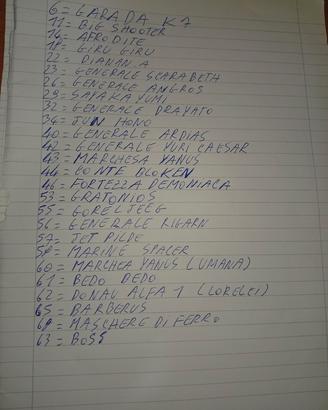 6 = GARADA K7
11 = BIG SHOOTER
14 = AFRODITE
18 = GIRU GIRU
22 = DIANAN A
23 = GENERALE SCARABETH
26 = GENERALE ANGROS
29 = SAYAKA YUMI
32 = GENERALE DRAYATO
34 = JUN HONO
40 = GENERALE ARDIAS
42 = GENERALE YURI CAESAR
43 = MARCHESA YANUS
44 = CONTE BLOKEN
46 = FORTEZZA DEMONIACA
53 = GRATONIOS
55 = GOREL JEEG
56 = GENERALE RIGARN
57 = JET PILDE
58 = MARINE SPACER
60 = MARCHEA YANUS (UMANA)
61 = BEDO DEDO
62 = DONAU ALFA 1 (LORELEI)
65 = BARBERUS
= MASCHERE DI FERRO
63 = BOSS